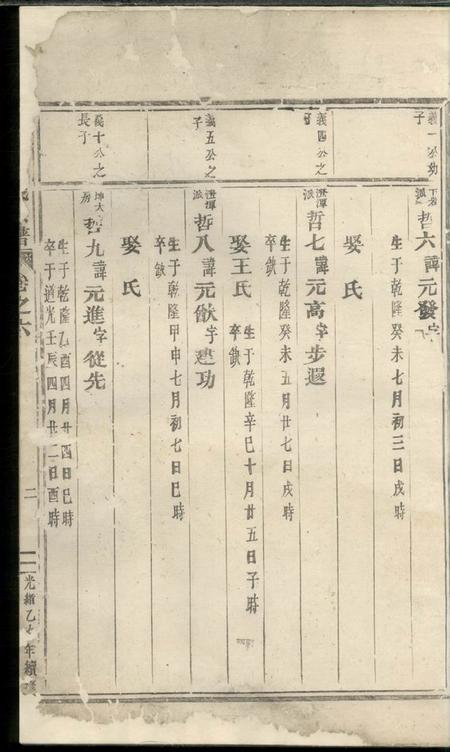 義一公幼
子
哲六諱元發字
生于乾隆癸未七月初三日戌時
娶 氏
義四公之
子
澄潭
派
哲七諱元高字步遐
生于乾隆癸未五月廿七日戌時
卒缺
娶王氏
生于乾隆辛巳十月廿五日子時
卒缺
義五公之
子
澄潭
派
哲八諱元猷字建功
生于乾隆甲申七月初七日巳時
卒缺
娶 氏
義十公之
長子
哲九諱元進字從先
生于乾隆乙酉四月廿四日巳時
卒于道光壬辰四月廿二日酉時
譜
卷之六
二
光緒乙 年續修